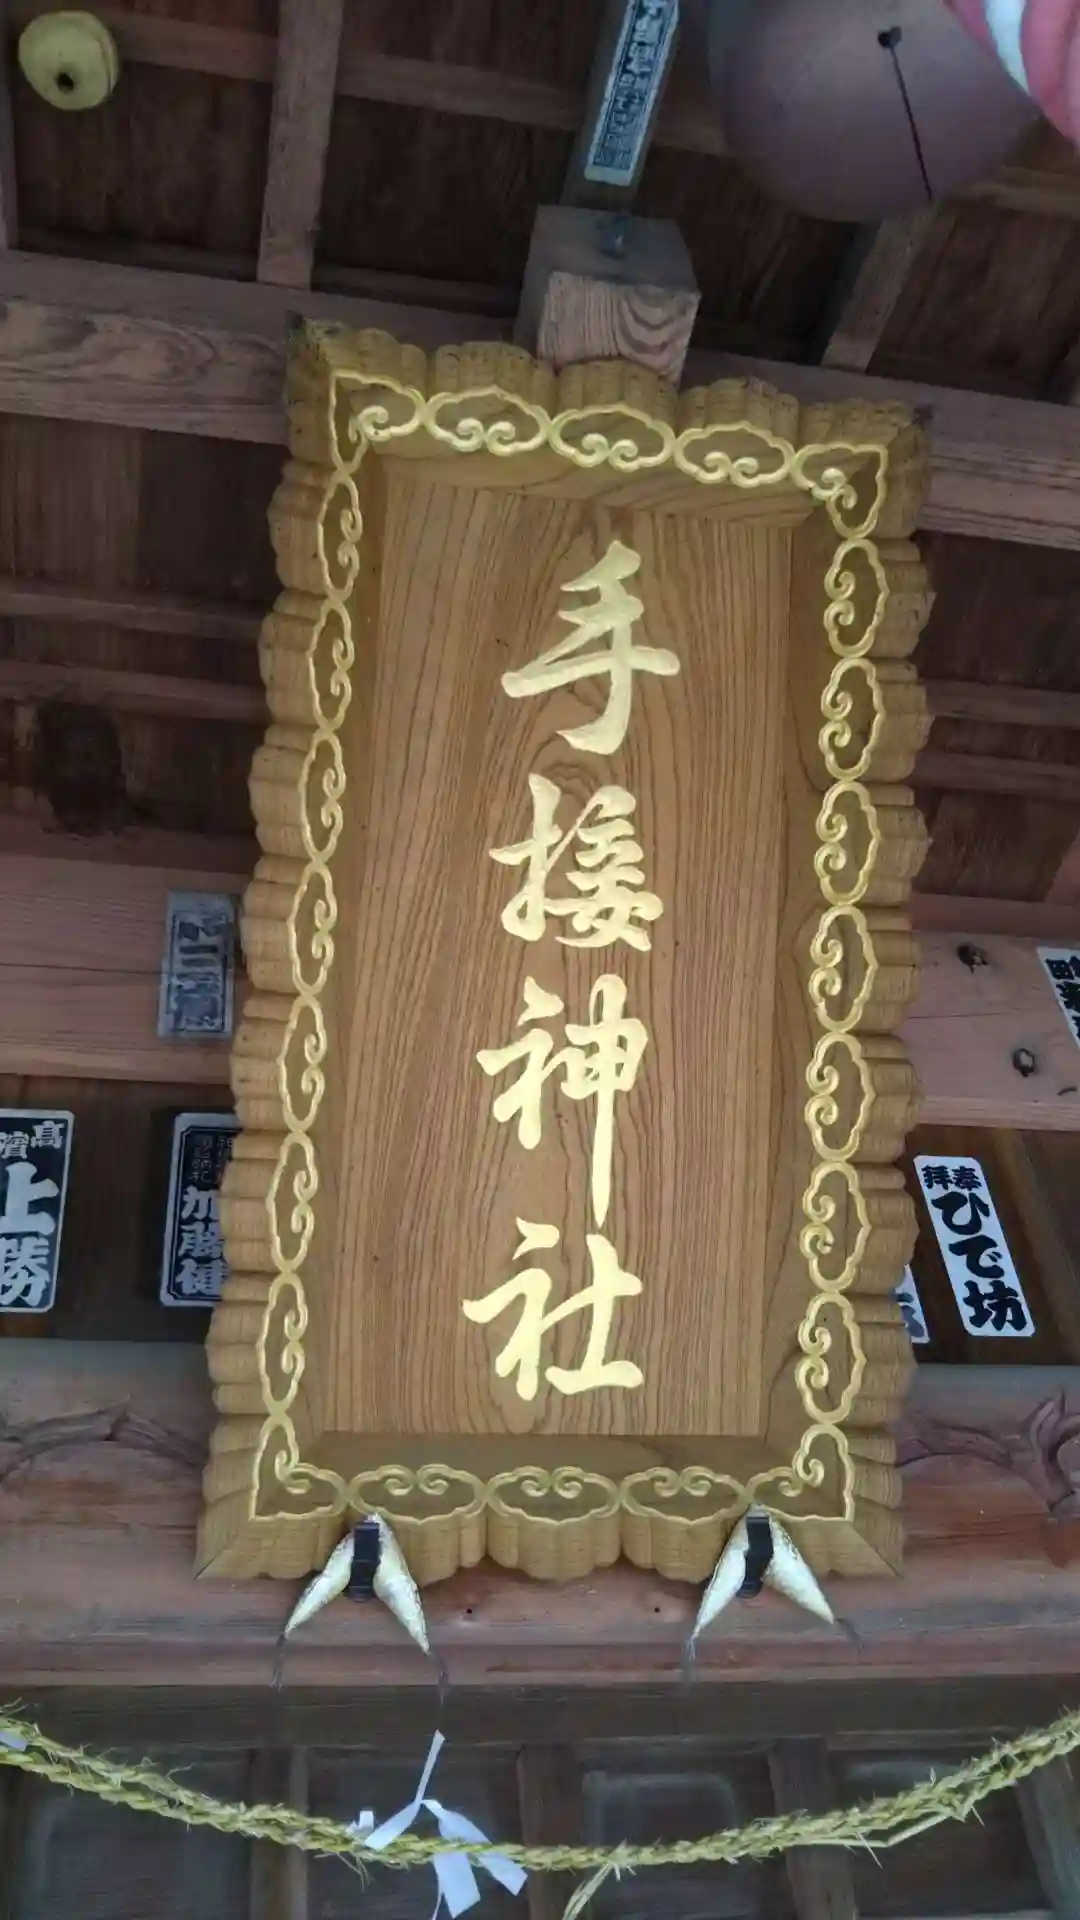 手接神社
髙濱
上勝
加藤健
奉拝
ひで坊